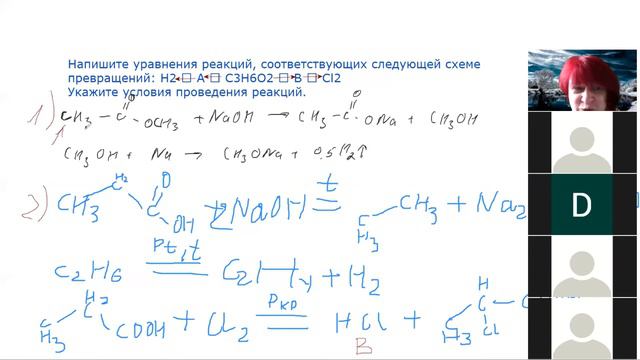 Напишите уравнения реакций, соответствующих следующей схеме
превращений: H2 □ A □ C3H6O2 □ B □ Cl2
Укажите условия проведения реакций.
1) CH3 - C O OCH3 + NaOH → CH3 - C O ONa + CH3OH
1
CH3OH + Na → CH3ONa + 0.5H2↑
2) CH3 H2 C O OH + 2NaOH = t H3C CH3 + Na2
C2H6 = Pt, t C2H4 + H2
H3C H2C COOH + Cl2 = Pкр HCl + H3C H C Cl
B
D